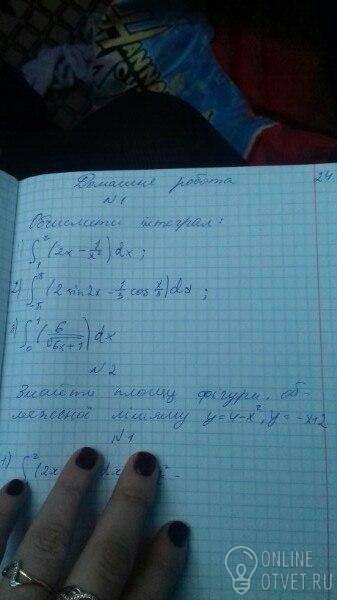 HANNAH
Домашня робота
24.
N1
Обчислити інтеграл:
1) ∫₁² (2x - 1/x²) dx;
2) ∫₋π^π (2 sin 2x - 1/3 cos x/3) dx;
3) ∫₀¹ (6/√(6x+1)) dx
N2
Знайти площу фігури, об-
меженої лініями y=4-x², y=-x+2
N1
1) ∫ ² (2x dx
ONLINE
OTVET.RU